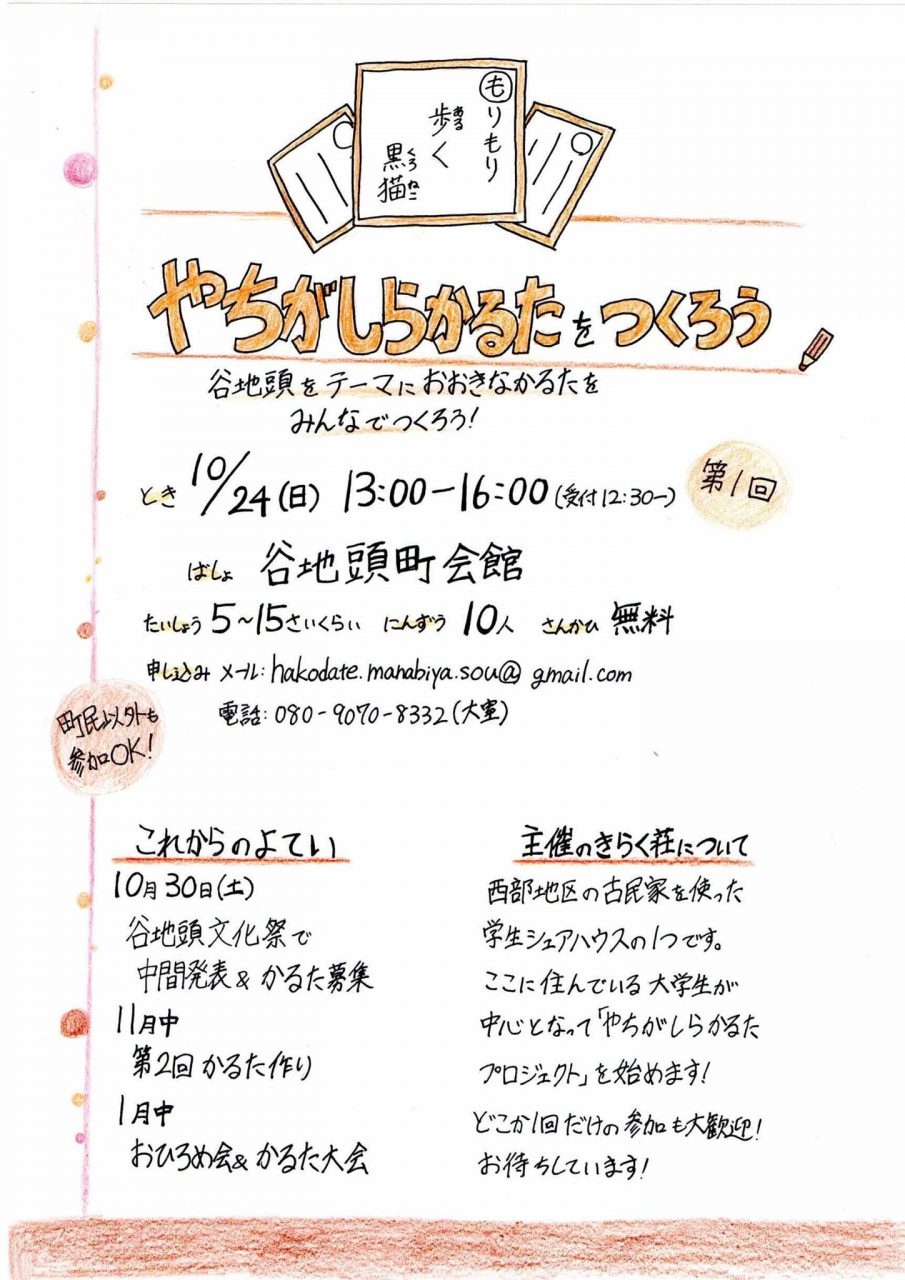 もりもり
歩く
ある
黒猫
くろねこ
やちがしらかるたをつくろう
谷地頭をテーマにおおきなかるたを
みんなでつくろう!
とき 10/24(日) 13:00-16:00(受付12:30-)
第1回
ばしょ 谷地頭町会館
たいしょう 5~15さいくらい にんずう 10人 さんかひ 無料
申し込み メール: hakodate.manabiya.sou@gmail.com
電話: 080-9070-8332(大室)
町民以外も
参加OK!
これからのよてい
10月30日(土)
谷地頭文化祭で
中間発表&かるた募集
11月中
第2回かるた作り
1月中
おひろめ会&かるた大会
主催のきらく荘について
西部地区の古民家を使った
学生シェアハウスの1つです。
ここに住んでいる大学生が
中心となって「やちがしらかるた
プロジェクト」を始めます!
どこか1回だけの参加も大歓迎!
お待ちしています!